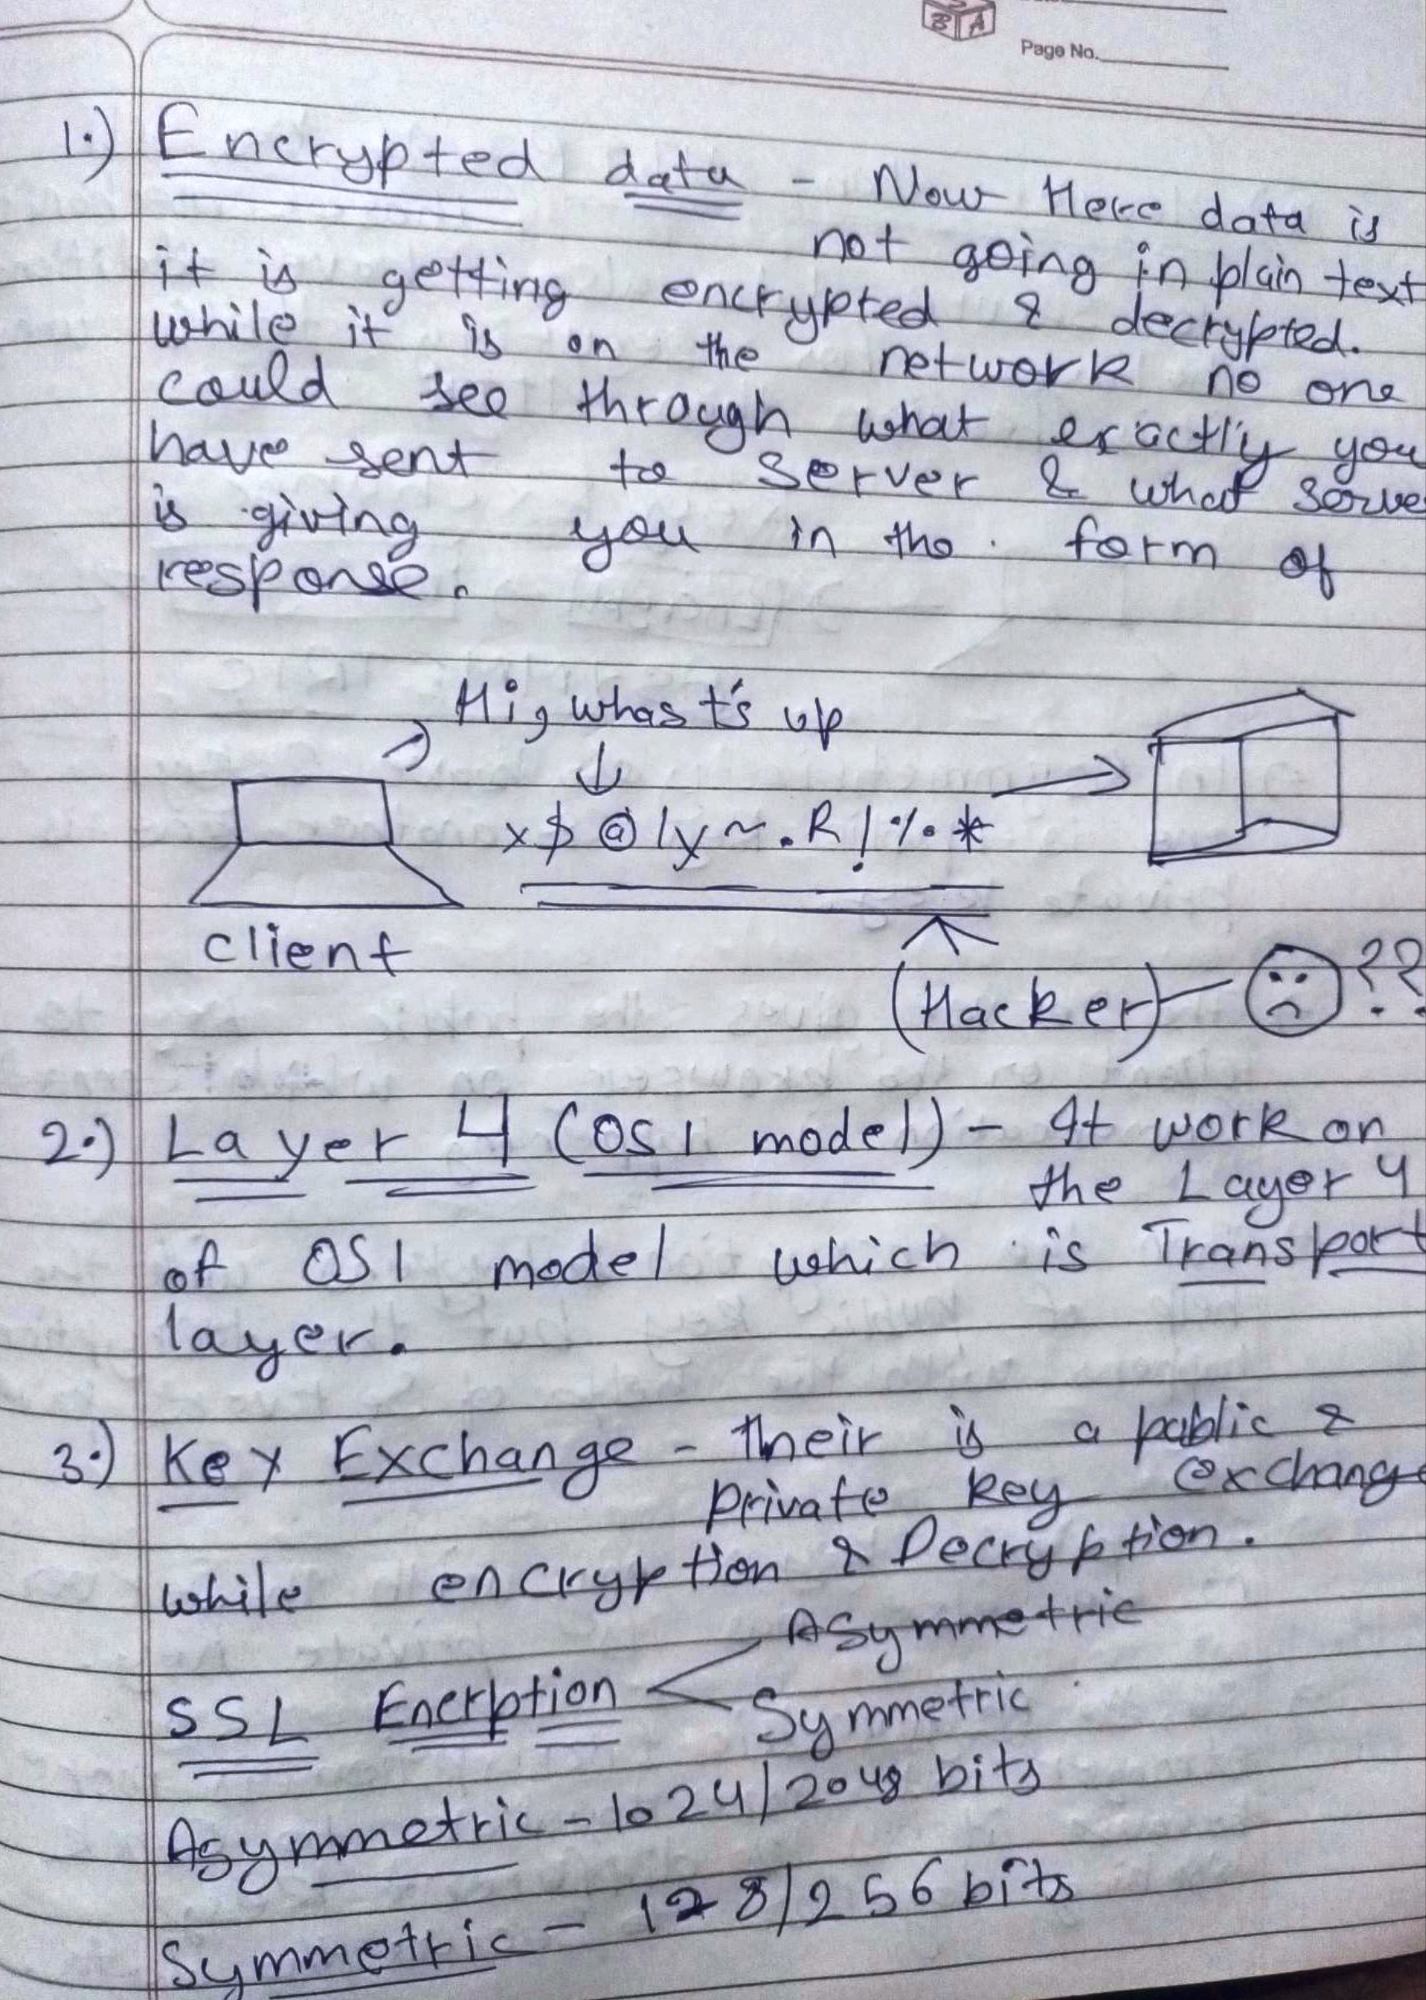 B A
Page No.
1.) Encrypted data - Now Here data is
not going in plain text
it is getting encrypted & decrypted.
while it is on the network no one
could see through what exactly you
have sent to server & what serve
is giving you in the form of
response.
Hi, whast's up
x$@!y~.R!%.*
client
(Hacker) ??
2.) Layer 4 (OSI model) - It work on
the Layer 4
of OSI model which is Transport
layer.
3.) Key Exchange - their is a public &
private key exchange
while encryption & Decryption.
Asymmetric
SSL Encrption
Symmetric
Asymmetric - 1024/2048 bits
Symmetric - 128/256 bits